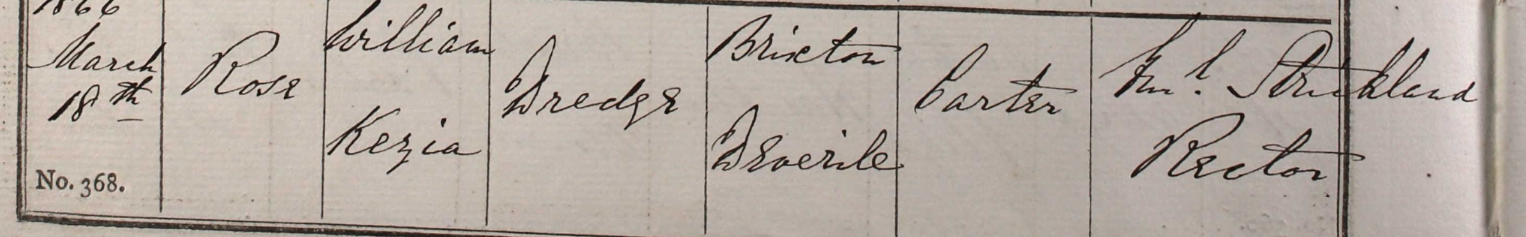 1866
March
18th
No. 368.
Rose
William
Kezia
Dredge
Brixton
Deverile
Carter
Strickland
Rector